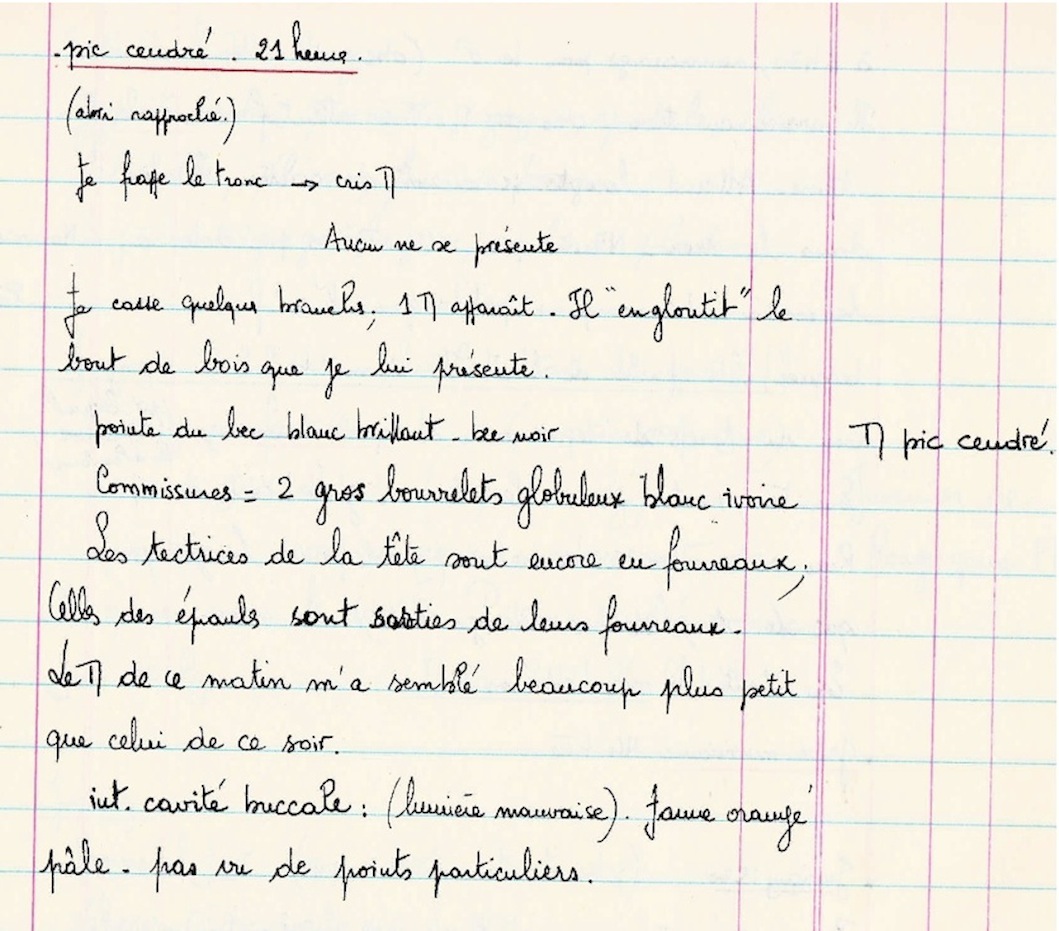 - pic cendré. 21 heure.
(abri rapproché.)
Je frappe le tronc → cris Π
Aucun ne se présente
Je casse quelques branches, 1 Π apparaît. Il "engloutit" le
bout de bois que je lui présente.
pointe du bec blanc brillant - bec noir
Π pic cendré.
Commissures = 2 gros bourrelets globuleux blanc ivoire
Les tectrices de la tête sont encore en fourreaux,
Celles des épaules sont sorties de leurs fourreaux.
Le Π de ce matin m'a semblé beaucoup plus petit
que celui de ce soir.
int. cavité buccale : (lumière mauvaise). Jaune orangé
pâle - pas vu de points particuliers.